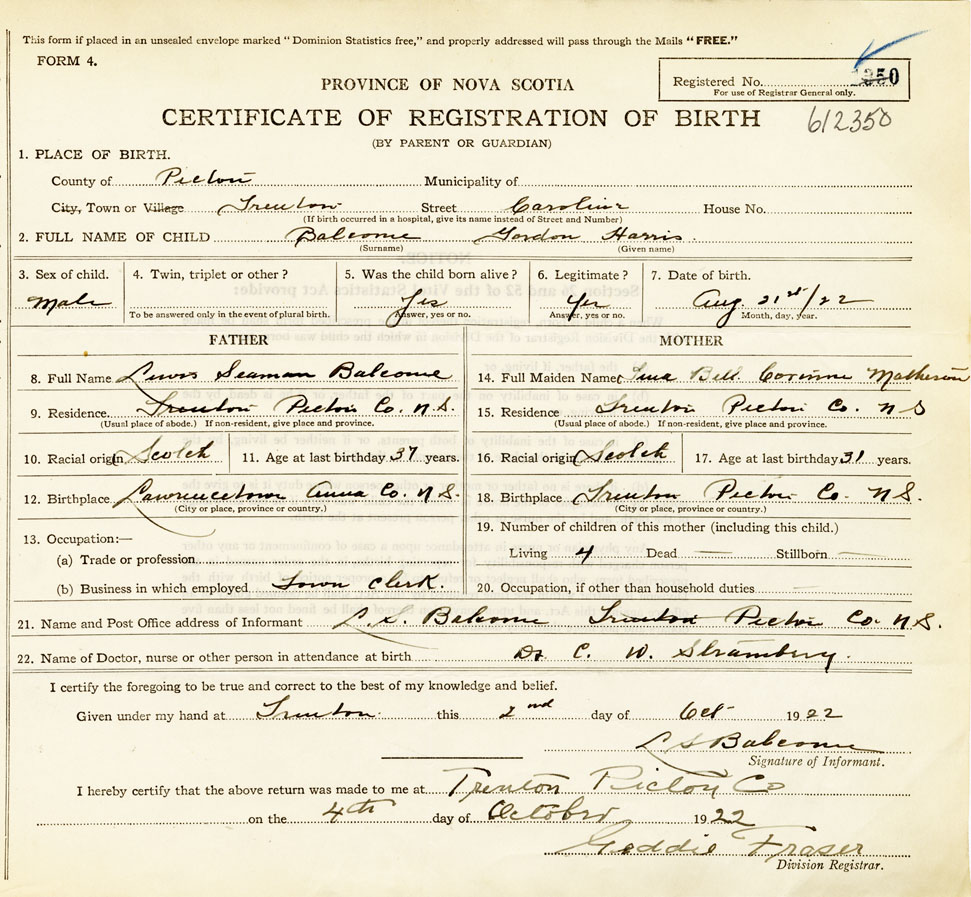 This form if placed in an unsealed envelope marked "Dominion Statistics free," and properly addressed will pass through the Mails "FREE."
FORM 4.
PROVINCE OF NOVA SCOTIA
Registered No.
For use of Registrar General only.
CERTIFICATE OF REGISTRATION OF BIRTH 612350
(BY PARENT OR GUARDIAN)
1. PLACE OF BIRTH.
County of Pictou Municipality of
City, Town or Village Trenton Street Caroline House No.
(If birth occurred in a hospital, give its name instead of Street and Number)
2. FULL NAME OF CHILD Balcome Gordon Harris
(Surname) (Given name)
3. Sex of child. 4. Twin, triplet or other? 5. Was the child born alive? 6. Legitimate? 7. Date of birth.
Male Yes Yes Aug. 21st/22
To be answered only in the event of plural birth. Answer, yes or no. Answer, yes or no. Month, day, year.
FATHER MOTHER
8. Full Name Lewis Seaman Balcome 14. Full Maiden Name Bell Corinne Matheson
9. Residence Trenton Pictou Co. N.S. 15. Residence Trenton Pictou Co. N S
(Usual place of abode.) If non-resident, give place and province. (Usual place of abode.) If non-resident, give place and province.
10. Racial origin Scotch 11. Age at last birthday 37 years. 16. Racial origin Scotch 17. Age at last birthday 31 years.
12. Birthplace Lawrencetown Anna Co. N.S. 18. Birthplace Trenton Pictou Co. N.S.
(City or place, province or country.) (City or place, province or country.)
13. Occupation:— 19. Number of children of this mother (including this child.)
(a) Trade or profession Living 4 Dead — Stillborn —
(b) Business in which employed Town Clerk. 20. Occupation, if other than household duties
21. Name and Post Office address of Informant L.S. Balcome Trenton Pictou Co. N.S.
22. Name of Doctor, nurse or other person in attendance at birth Dr C. W.
I certify the foregoing to be true and correct to the best of my knowledge and belief.
Given under my hand at Trenton this 2nd day of Oct 1922
L S Balcome
Signature of Informant.
I hereby certify that the above return was made to me at Trenton Pictou Co
on the 4th day of October 1922
Geddie Fraser
Division Registrar.